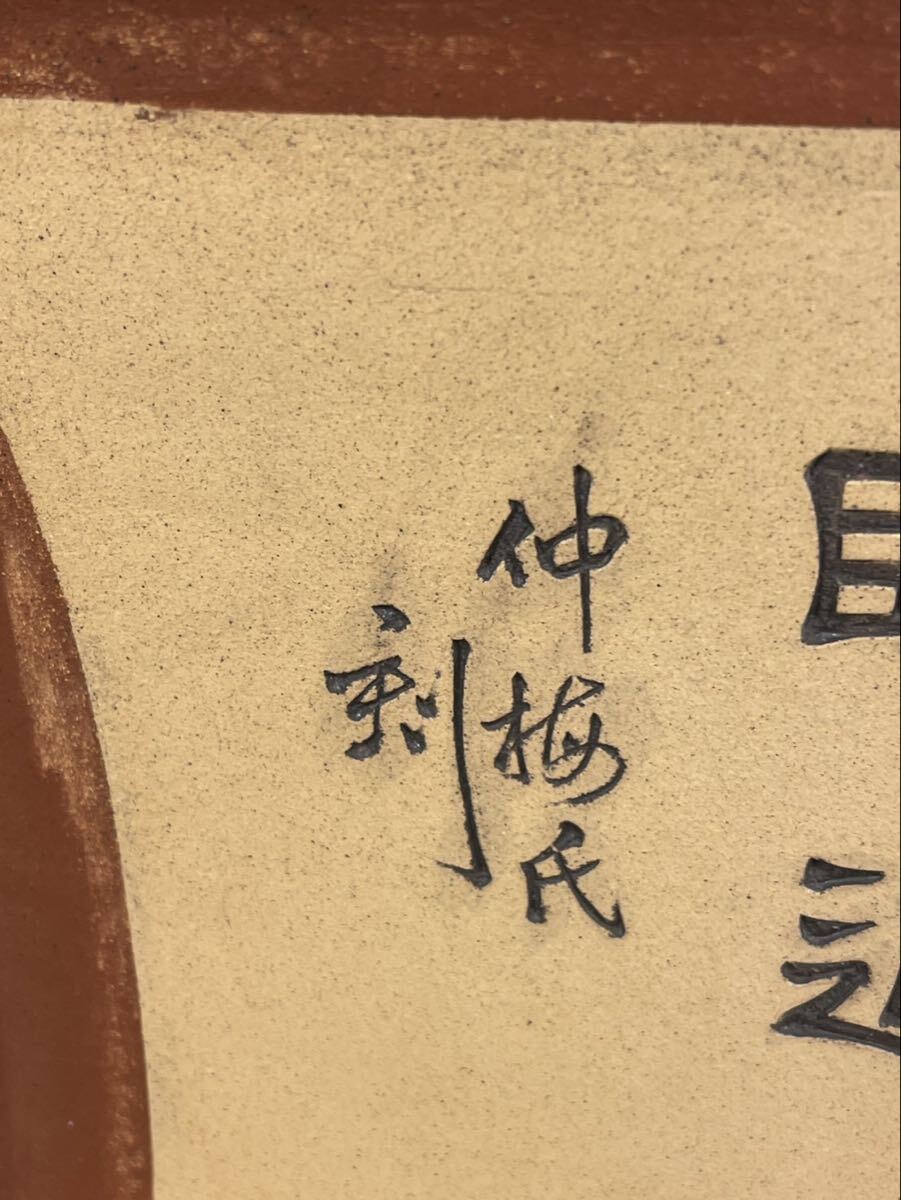 仲梅氏
刻